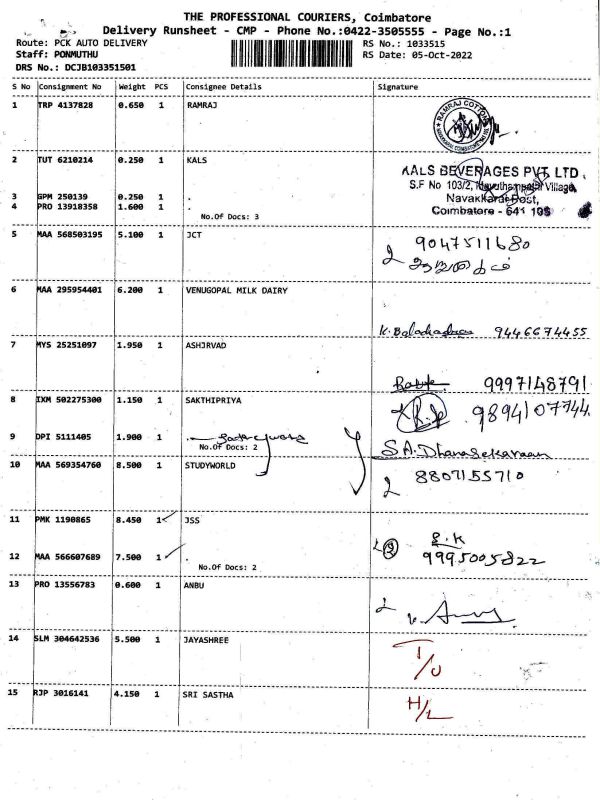 THE PROFESSIONAL COURIERS, Coimbatore
Delivery Runsheet - CMP - Phone No.:0422-3505555 - Page No.:1
Route: PCK AUTO DELIVERY
RS No.: 1033515
Staff: PONMUTHU
RS Date: 05-Oct-2022
DRS No.: DCJB103351501
S No Consignment No Weight PCS Consignee Details Signature
1 TRP 4137828 0.650 1 RAMRAJ
RAMRAJ COTTON
2 TUT 6210214 0.250 1 KALS
KALS BEVERAGES PVT. LTD.
S.F No 103/2, Village,
Navakkarai Post,
Coimbatore - 641 105
3 GPM 250139 0.250 1 .
4 PRO 13918358 1.600 1 .
No.Of Docs: 3
5 MAA 568503195 5.100 1 JCT
9047511680
6 MAA 295954401 6.200 1 VENUGOPAL MILK DAIRY
9446674455
7 MYS 25251097 1.950 1 ASHJRVAD
9997148791
8 IXM 502275300 1.150 1 SAKTHIPRIYA
9894107744
9 DPI 5111405 1.900 1 .
No.Of Docs: 2
S.A. Dhanasekaraan
10 MAA 569354760 8.500 1 STUDYWORLD
8807155710
11 PMK 1190865 8.450 1 JSS
S.K
9995005822
12 MAA 566607689 7.500 1 .
No.Of Docs: 2
13 PRO 13556783 0.600 1 ANBU
14 SLM 304642536 5.500 1 JAYASHREE
T/U
15 RJP 3016141 4.150 1 SRI SASTHA
H/L